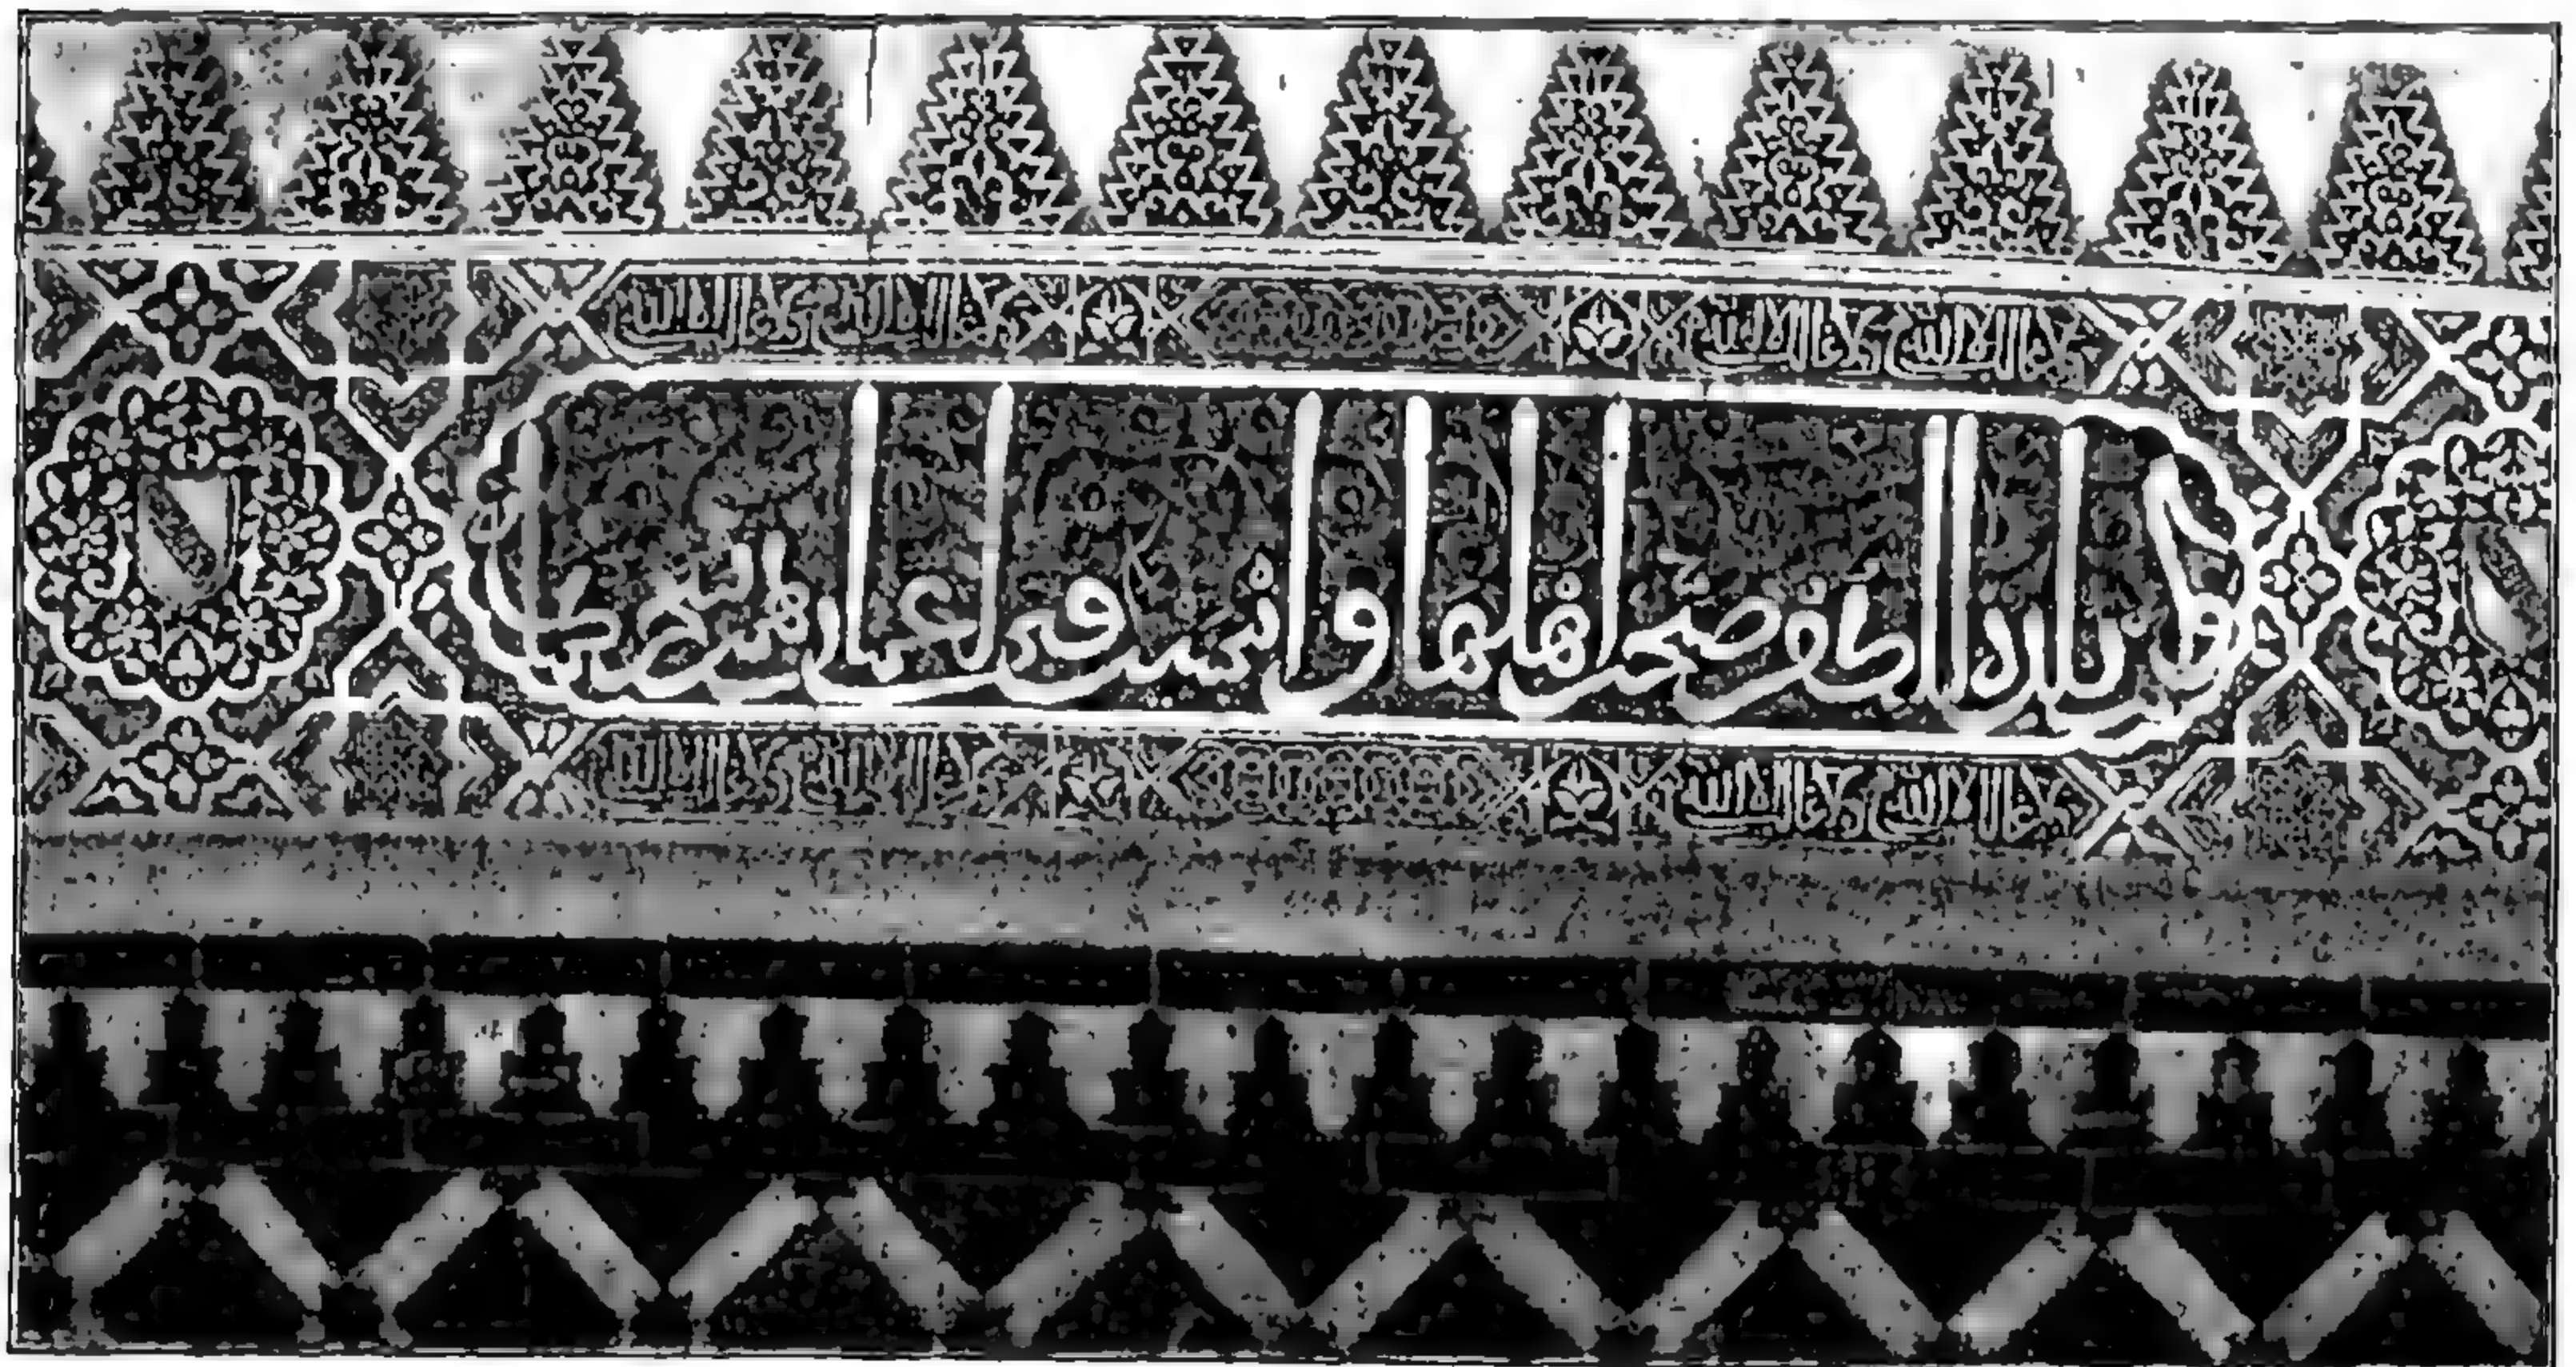 ولا غالب إلا الله ولا غالب إلا الله
ولا غالب إلا الله ولا غالب إلا الله
فكم بلدة للكفر صبحت أهلها وأمسيت في أعمارهم متحكما
ولا غالب إلا الله ولا غالب إلا الله
ولا غالب إلا الله ولا غالب إلا الله